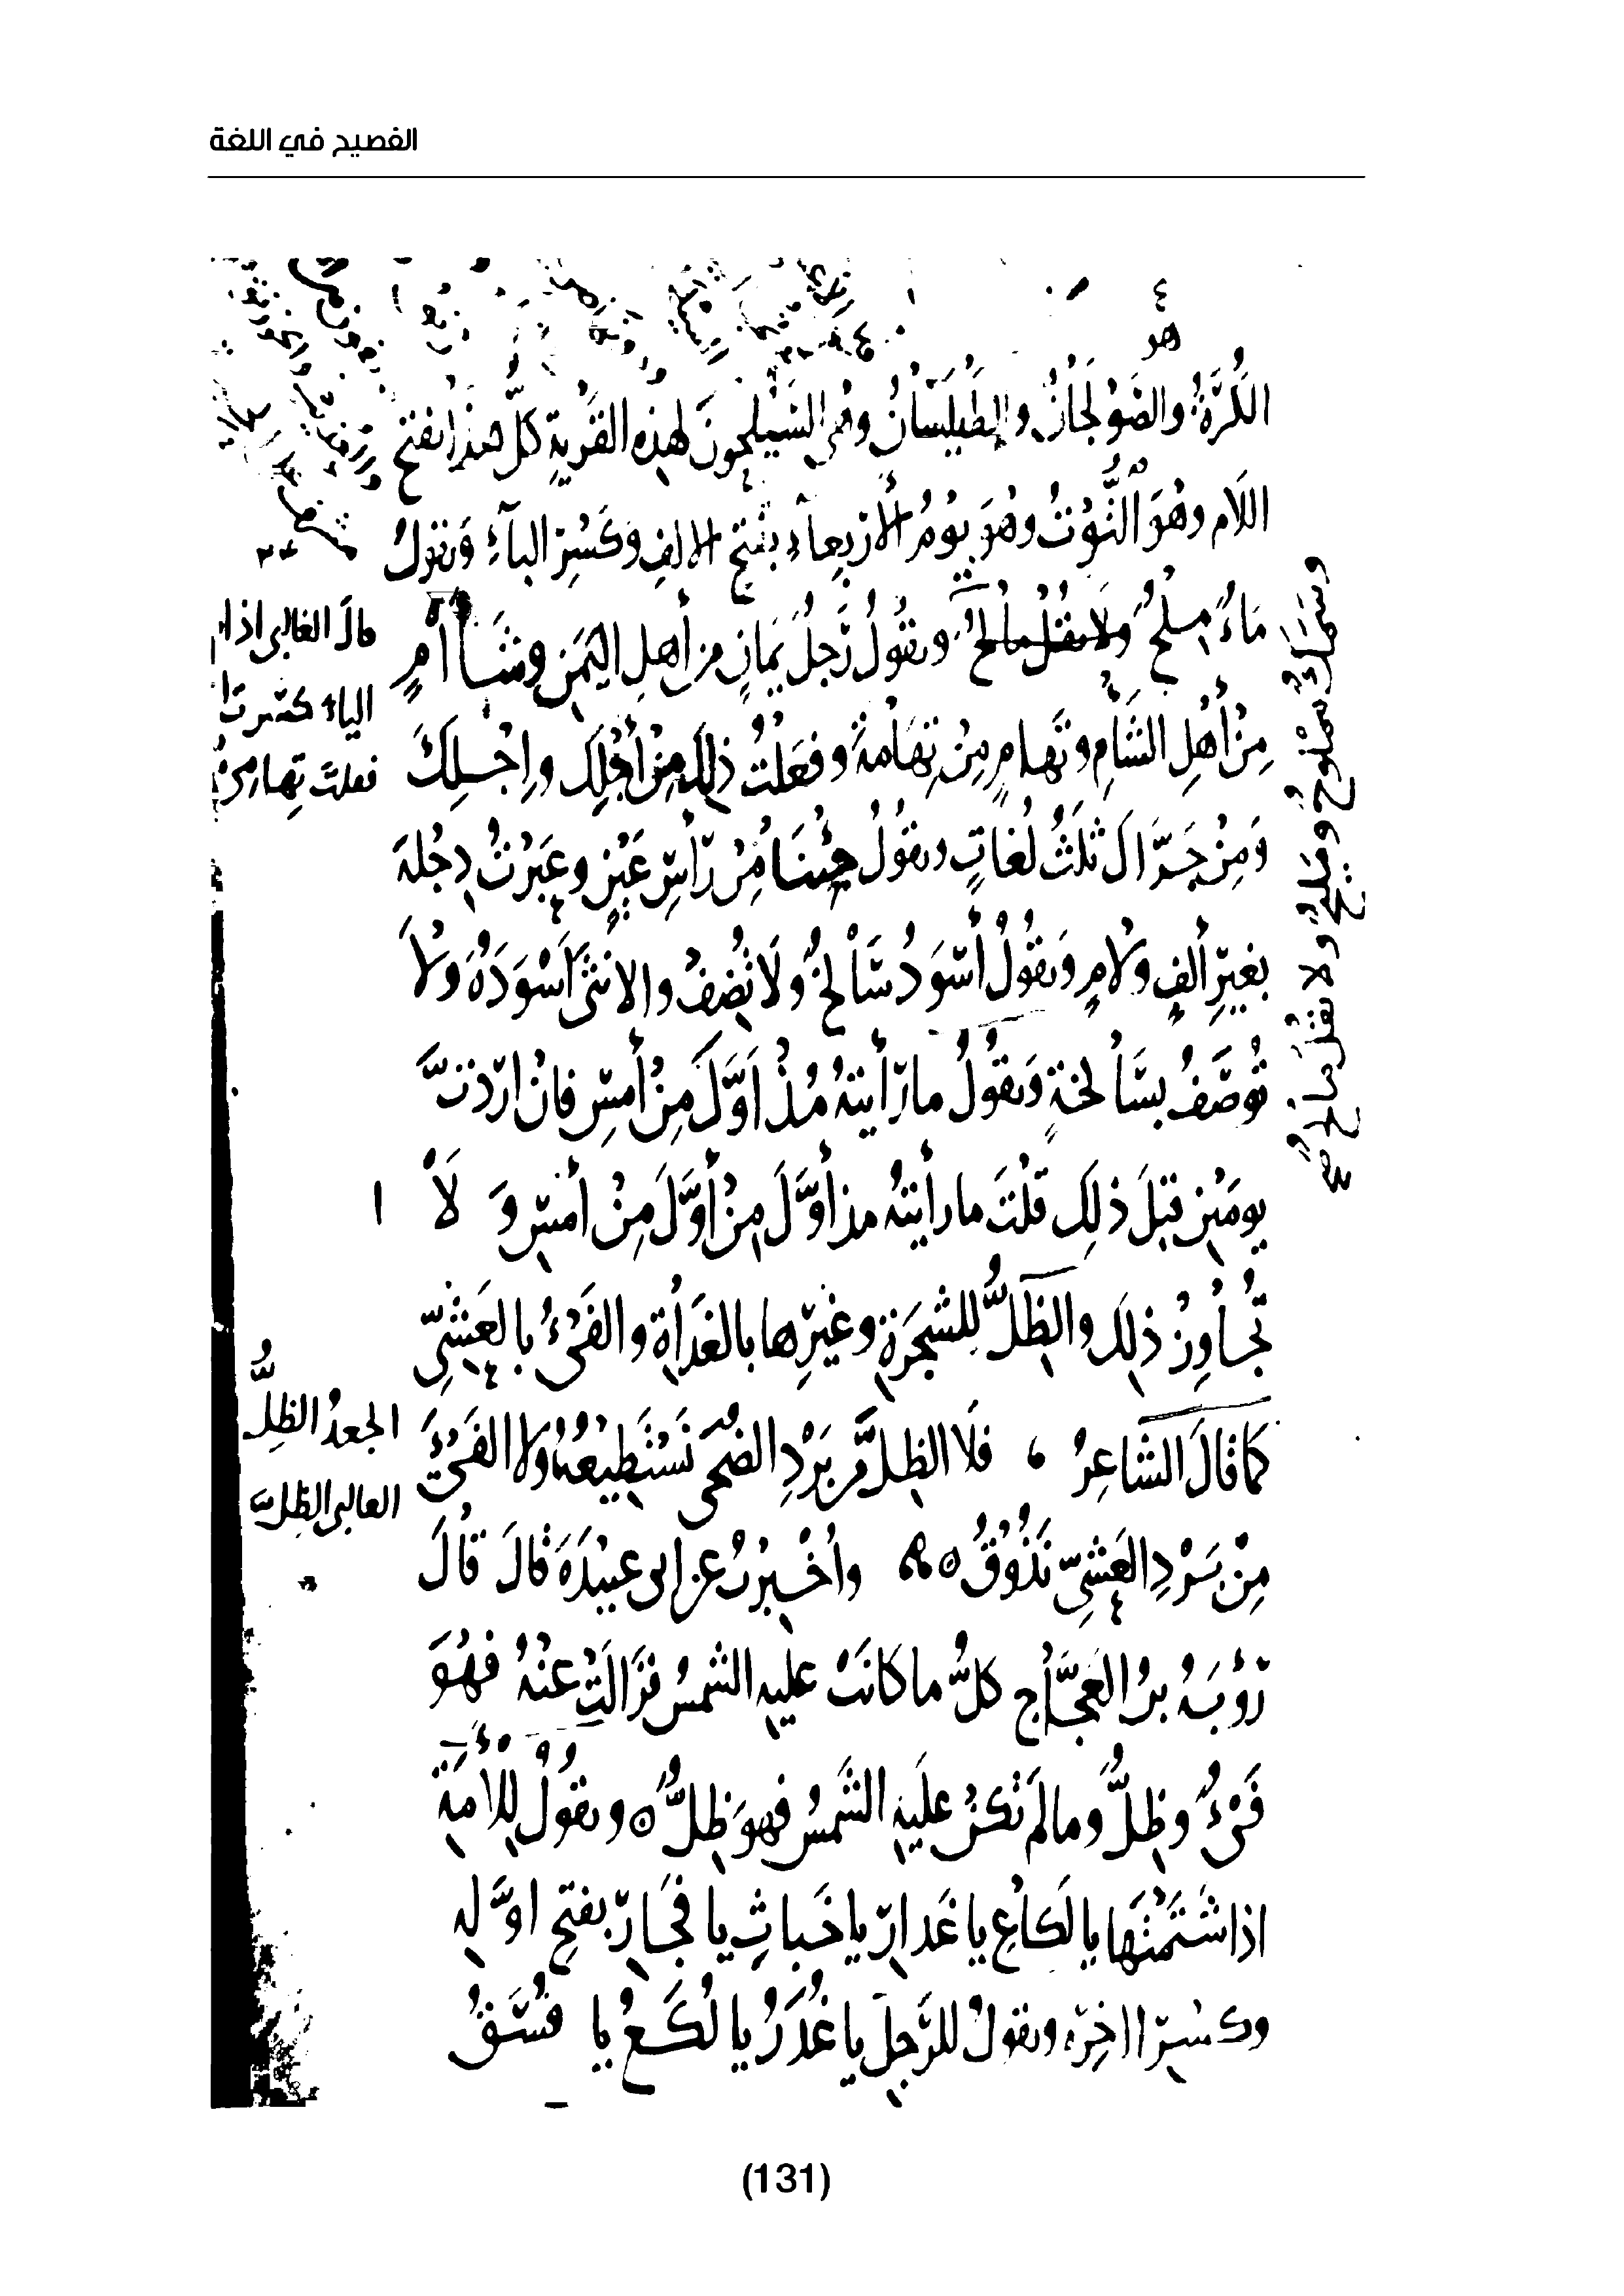 الفصيح في اللغة
هو
الكُرَةُ والصَوْلَجَانُ والطَيْلَسَانُ وهي السَيْلَحُونَ لهذه القَرْيةِ كلُّ هذا بفتح
اللام وهُوَ التُّوْتُ وهُوَ يومُ الأَرْبِعاءِ بفتح الالفِ وكَسْرِ الباءِ وتقولُ
مَاءٌ مِلحٌ ولَا تقُلْ مالحٌ وتقُولُ رَجلٌ يَمَانٍ من أهلِ اليَمَنِ وشَأَامٍ
مِنْ أَهْلِ الشَامِ وتَهامٍ مِنْ تِهَامةَ وفعَلْتُ ذلك مِنْ أَجْلِكَ وإِجْلِكَ
وَمِنْ جَرَّاكَ ثلَثُ لُغاتٍ وتقُولُ جِئْنَا مِنْ رَأْسِ عَيْنٍ وعَبَرْتُ دِجْلةَ
بغيرِ ألفٍ ولامٍ وَتقُولُ أَسْوَدُ سَالخٌ ولَا تُضِفْ والانثَى أَسْوَدَةُ وَلَا
تُوصَفُ بسَالخَةٍ وَتقُولُ ما رَأيتهُ مُذْ أَوَّلَ مِنْ أَمسِ فانْ اردْتَ
يومَيْنِ قبلَ ذلِكَ قلْتَ ما رأيتهُ مذ أوَّلَ مِنْ أَوَّلَ مِنْ أَمْسِ وَ لَا
تُجاوِزْ ذلك والظِلُّ للشجَرَةِ وغيرِها بالغَدَاةِ والفَيْءُ بالعَشِيّ
كما قالَ الشاعِرُ ، فلَا الظلَّ من بَرْدِ الضُحَى تَسْتَطِيعُهُ ولا الفَيْءَ
مِنْ بَرْدِ العَشِيّ تَذُوقُ ه وأُخْبِرْتُ عن ابى عبيْدَةَ قالَ قالَ
رُؤبَةُ بنُ العَجَّاج كلُّ ما كانَتْ عليه الشمسُ فزَالَتْ عنْهُ فهُوَ
فَيْءٌ وظِلٌّ وما لَم تكنْ علَيْهِ الشَّمسُ فهوَ ظِلٌّ ه وتقُولُ للأَمَةِ
اذا شَتَمْتَهَا يا لَكَاعِ يا غَدارِ يا خَباثِ يا فَجَارِ بفتحِ اوَّلهِ
وكسْرِ ااخِرِه وتقولُ للرَّجلِ يا غُدَرُ يا لُكَعُ يا فُسَقُ
وسَمَكٌ مَمْلوحٌ ومَلِيحٌ ولا تقُلْ مالحٌ صح
قالَ الغالبى اذا
الياء كسَرتَ
فعلتَ تِهامِىّ
الجعدُ الظِلُّ
الغالبى الظِلَّ
(131)